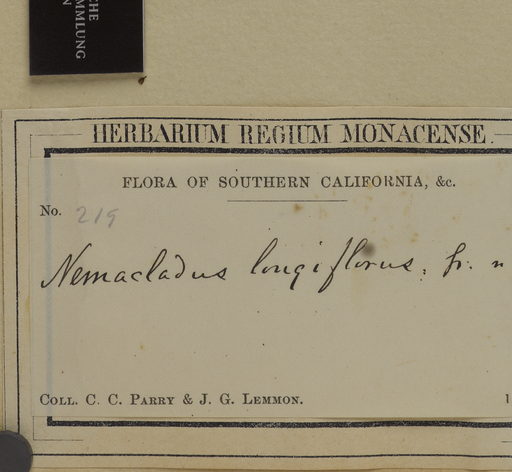 CHE
MMLUNG
N
HERBARIUM REGIUM MONACENSE.
FLORA OF SOUTHERN CALIFORNIA, &c.
No. 219
Nemacladus longiflorus, Gr. n
COLL. C. C. PARRY & J. G. LEMMON.
1